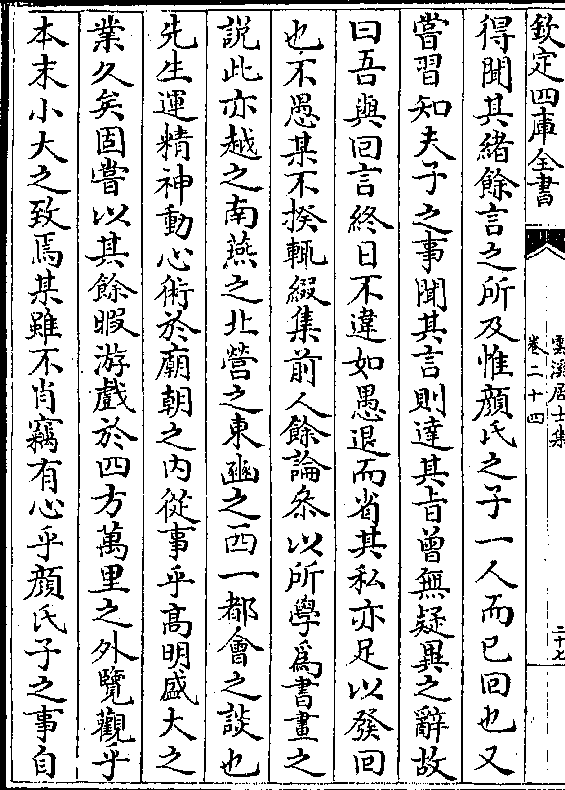 欽定四庫全書
雲溪居士集
卷二十四
二十七
得聞其緒餘言之所及惟顔氏之子一人而已回也又
嘗習知夫子之事聞其言則達其旨曾無疑異之辭故
曰吾與回言終日不違如愚退而省其私亦足以發回
也不愚某不揆輒綴集前人餘論叅以所學為書畫之
說此亦越之南燕之北營之東豳之西一都會之談也
先生運精神動心術於廟朝之内從事乎髙明盛大之
業久矣固嘗以其餘暇游戲於四方萬里之外覽觀乎
本末小大之致焉某雖不肖竊有心乎顔氏子之事自